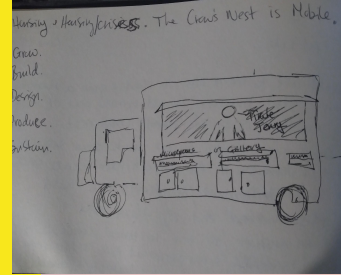 Housing & Housing/crisis. The Crow's Nest is Mobile.
Grow.
Build.
Design.
Produce.
Sustain.
Pirate
Jenny
Gallery